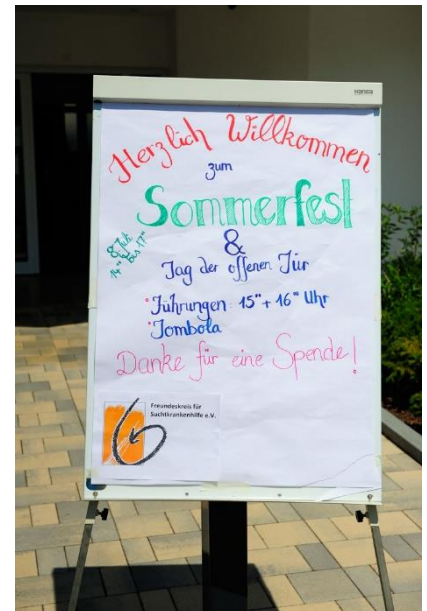 Hansa
Herzlich Willkommen
zum
Sommerfest
8. Juli
14°° bis 17°°
&
Tag der offenen Tür
*Führungen 15°° + 16°° Uhr
*Tombola
Danke für eine Spende!
Freundeskreis für
Suchtkrankenhilfe e.V.